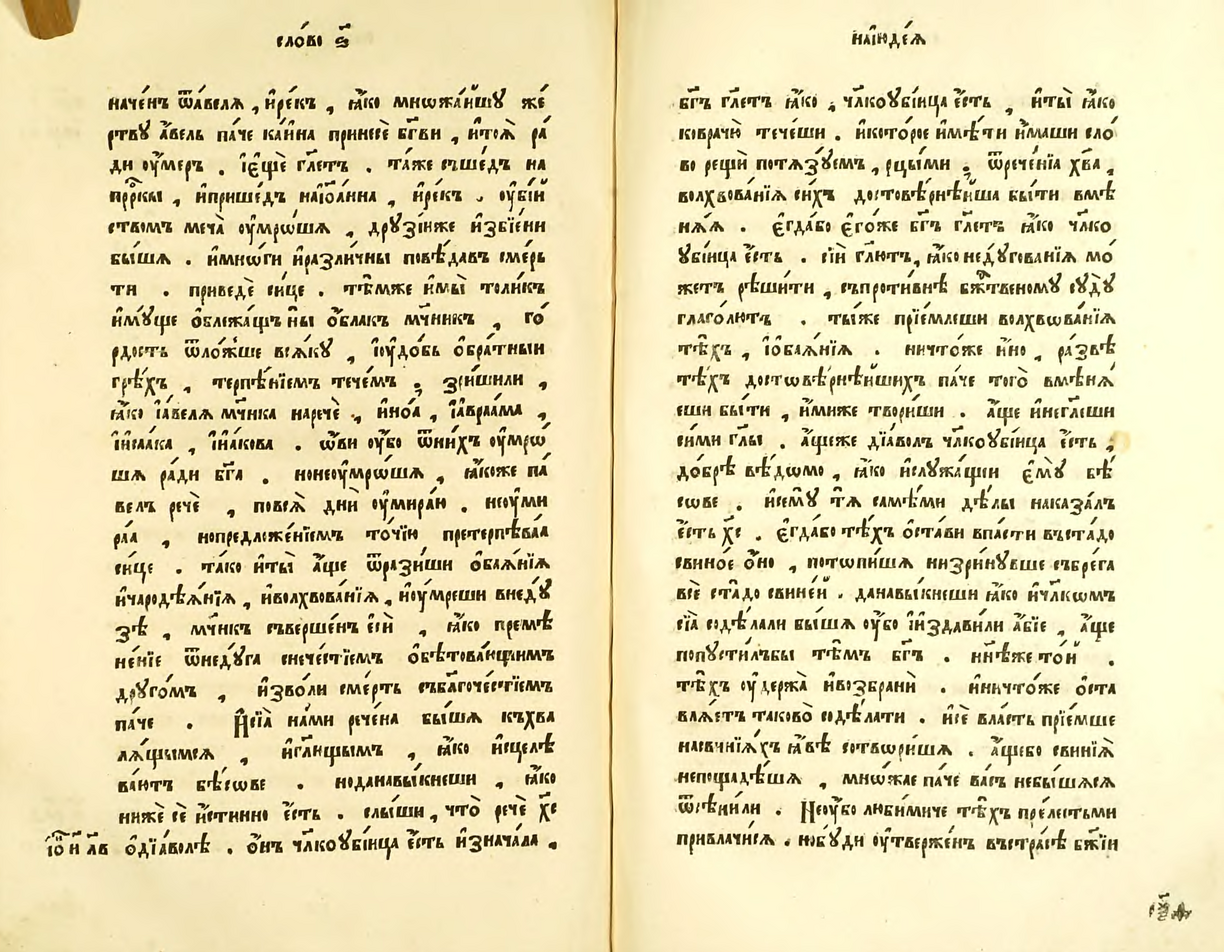 сло́во ѕ҃
наче́нъ ѿа́велѧ , и҆ре́къ , ꙗ҆́ко мнѡжа́йшꙋ же́
ртвꙋ а҆́вель паче ка́ина принесѐ бг҃ви , и҆тоѧ̀ ра́
ди оу҆́мер . і҆є҆щѐ гл҃етъ . та́же съше́дъ на
прⷪ҇ркы , и҆прише́дъ наі҆ѡ́анна , и҆ре́къ . оу҆бі́й
ствомъ меча̀ оу҆мро́шѧ , дрꙋзі́иже и҆збїе́ни
бы́шѧ . и҆мно́ги и҆разли́чны повѣ́давъ сме́рь
ти . приведѐ сице . тѣ́мже и҆мы̀ толи́къ
и҆мꙋ́ще ѻ҆блежа́щъ ны̀ ѻ҆́блакъ мч҃никъ , го́
рдость ѿло́жше всѧ́кꙋ , і҆оу҆до́бь ѻ҆бра́тныи
грѣ́хъ , терпѣ́нїемъ тече́мъ ; зри́шили ,
ꙗ҆́ко і҆а́велѧ мч҃ника наречѐ , и҆но́а , і҆авраа́ма ,
і҆и҆саа́ка , і҆и҆а́кова . ѡ҆́ви оу҆́бо ѿни́хъ оу҆мрѡ́
шѧ ра́ди бг҃а . нонеоу҆мро́шѧ , ꙗ҆́коже па́
велъ речѐ , повсѧ̀ дни̑ оу҆мира́ѧ . неоу҆ми
ра́ѧ , нопредложе́нїемъ то́чїю претерпѣ́ваѧ
си́це . та́ко и҆ты̀ а҆́ще ѿрази́ши ѻ҆баѧ́нїѧ
и҆чародѣѧ́нїѧ , и҆волхвова́нїѧ , и҆оу҆́мреши внедꙋ́
зѣ , мч҃никъ съверше́нъ є҆сѝ , ꙗ҆́ко премѣ
не́нїе ѿнедꙋ́га снече́стїемъ ѻ҆бѣтова́вшимъ
дрꙋго́мъ , и҆зво́ли сме́рть събл҃гоче́стїемъ
паче . И҆сїѧ̀ на́ми рече́на бы́шѧ къхва
лѧ́щымсѧ , и҆гл҃щымъ , ꙗ҆́ко и҆сцелѣ̀
ва́ютъ бѣ́сове . ноданавы́кнеши , ꙗ҆́ко
нижѐ сѐ и҆́стинно є҆́сть . слы́ши , что̀ речѐ хс҃
і҆ѡ҃ и҃ лв ѻ҆дїа́волѣ . ѻ҆́нъ чл҃коꙋбі́ица є҆́сть и҆знача́ла .
наі҆ю҆де́ѧ
бг҃ъ гл҃етъ ꙗ҆́ко , чл҃коꙋбі́ица є҆́сть , и҆ты̀ ꙗ҆́ко
ковра́чю тече́ши . и҆кото́рое и҆мѣ́ти и҆́маши сло́
во рещѝ потѧ́зꙋемъ , рцы́ми ; ѿрече́нїѧ хв҃а ,
волхвова́нїѧ си́хъ достовѣ́рнѣйша бы́ти вмѣ
нѧ́ѧ . є҆гда́бо є҆го́же бг҃ъ гл҃етъ ꙗ҆́ко чл҃ко
ꙋбі́ица є҆́сть . сі́и гл҃ютъ, ꙗ҆́ко недꙋгова́нїѧ мо́
жетъ рѣши́ти , съпроти́внѣ бж҃твеномꙋ сꙋдꙋ̀
глаго́лютъ . ты́же прїе́млеши волхвѡва́нїѧ
тѣ́хъ , і҆ѻ҆баѧ́нїѧ . ничто́же и҆́но , ра́звѣ
тѣ́хъ достѡвѣ́рнѣйшихъ па́че того̀ вмѣнѧ́
еши бы́ти , и҆́миже твори́ши . а҆́ще и҆негл҃еши
си́ми гл҃ы . а҆́щеже дїа́волъ чл҃коꙋбі́ица є҆́сть ,
до́брѣ вѣ́дѡмо , ꙗ҆́ко и҆слꙋжа́щїи є҆мꙋ̀ бѣ́
сове . и҆семꙋ̀ тѧ̀ самѣ́ми дѣ́лы наказа́лъ
є҆́сть хс҃ . є҆гда́бо тѣ́хъ ѻ҆ста́ви впа́сти въста́до
свино́е ѻ҆́но , потопи́шѧ низри́нꙋвше събре́га
всѐ ста́до свине́й . данавы́кнеши ꙗ҆́ко и҆чл҃кѡмъ
сїѧ̀ содѣ́лали бы́шѧ оу҆́бо і҆издави́ли а҆́бїе , а҆́ще
попꙋсти́лъбы тѣ́мъ бг҃ъ . нн҃ѣже то́й .
тѣ́хъ оу҆держа̀ и҆возбранѝ . и҆ничто́же ѻ҆ста
влѧ́етъ таково̀ содѣ́лати . и҆сѐ вла́сть прїе́мше
насвинїѧ́хъ ꙗ҆́вѣ сотвори́шѧ . а҆́щебо свинїѧ̀
непощадѣ́шѧ , мно́жае па́че ва́съ небы́шѧсѧ
ѿсѣни́ли . Неоу҆́бо люби́миче тѣ́хъ пре́лестьми
привлачи́сѧ . нобꙋ́ди оу҆твержде́нъ въстра́сѣ бж҃їи